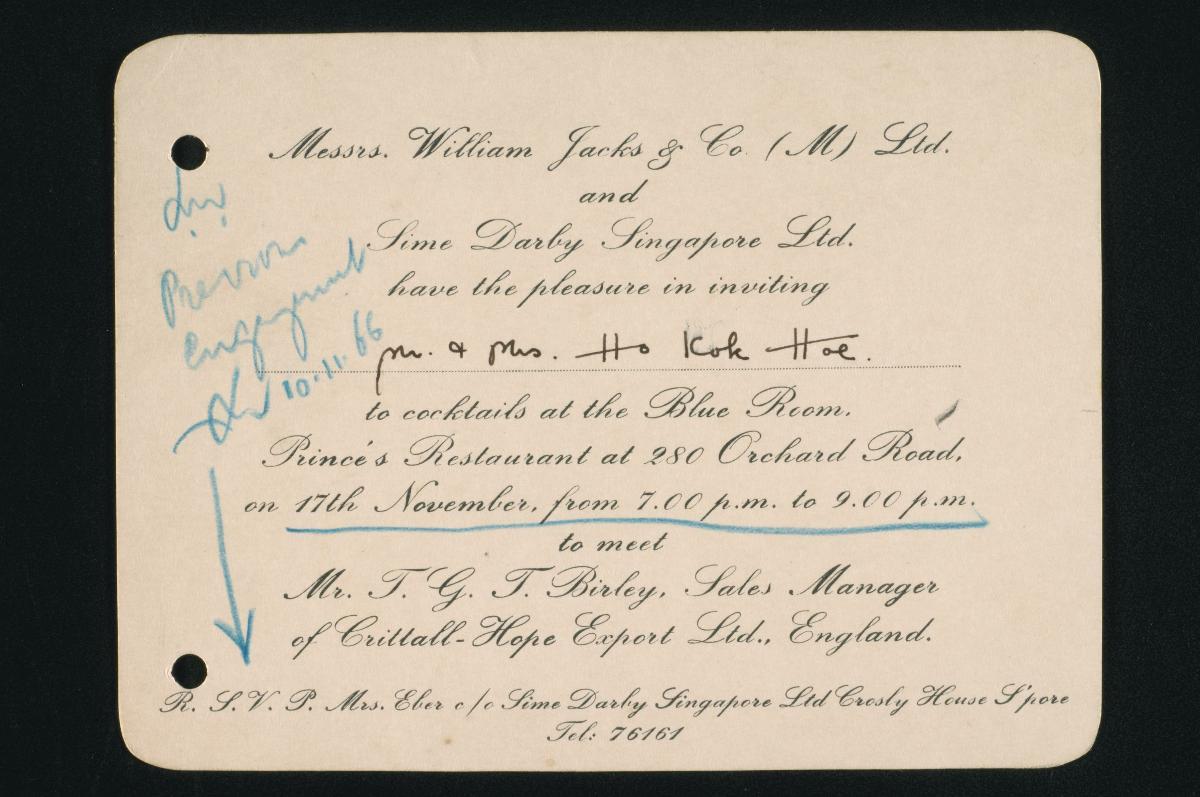 Messrs. William Jacks & Co. (M) Ltd.
and
Sime Darby Singapore Ltd.
have the pleasure in inviting
Mr. & Mrs. Ho Kok Hoe.
to cocktails at the Blue Room,
Prince's Restaurant at 280 Orchard Road,
on 17th November, from 7.00 p.m. to 9.00 p.m.
to meet
Mr. T. G. T. Birley, Sales Manager
of Crittall-Hope Export Ltd., England.
R. S. V. P. Mrs. Eber c/o Sime Darby Singapore Ltd Crosly House S'pore
Tel: 76161
Previous
engagement
10.11.66